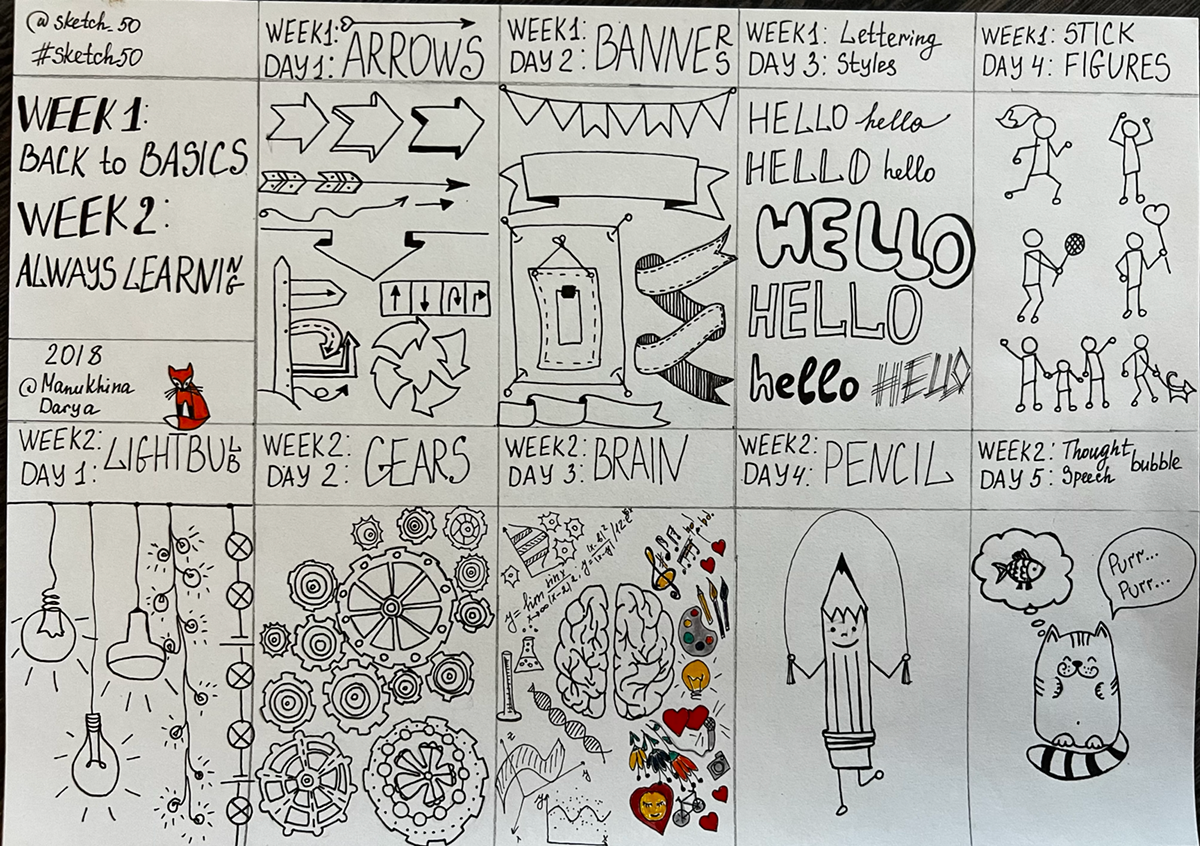 @sketch_50
#Sketch50
WEEK 1:
BACK to BASICS
WEEK 2:
ALWAYS LEARNING
2018
@Manukhina
Darya
WEEK1:
DAY 1: ARROWS
WEEK1:
DAY 2: BANNERS
WEEK1: Lettering
DAY 3: Styles
HELLO hello
HELLO hello
HELLO
HELLO
hello HELLO
WEEK1: STICK
DAY 4: FIGURES
WEEK2:
DAY 1: LIGHTBULB
WEEK2:
DAY 2: GEARS
WEEK2:
DAY 3: BRAIN
y
x
WEEK2:
DAY4: PENCIL
WEEK2: Thought bubble
DAY 5: Speech
Purr...
Purr...